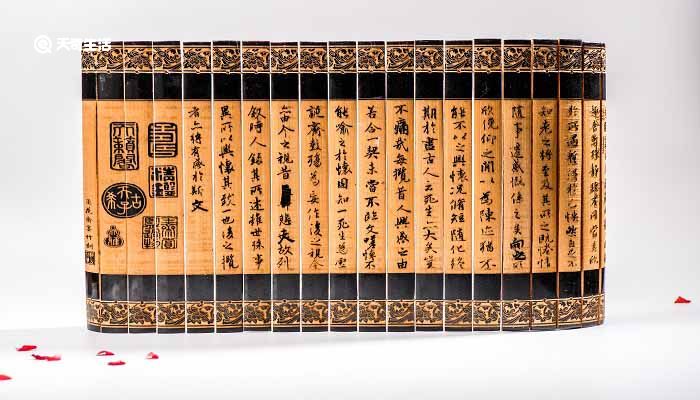 天奇生活
趣舍萬殊靜躁不同當其欣
於所遇暫得於己怏然自足不
知老之將至及其所之既惓情
隨事遷感慨係之矣向之所
欣俛仰之間以為陳迹猶不
能不以之興懷況脩短隨化終
期於盡古人云死生亦大矣豈
不痛哉每攬昔人興感之由
若合一契未嘗不臨文嗟悼不
能喻之於懷固知一死生為虛
誕齊彭殤為妄作後之視今
亦由今之視昔悲夫故列
敘時人錄其所述雖世殊事
異所以興懷其致一也後之攬
者亦將有感於斯文